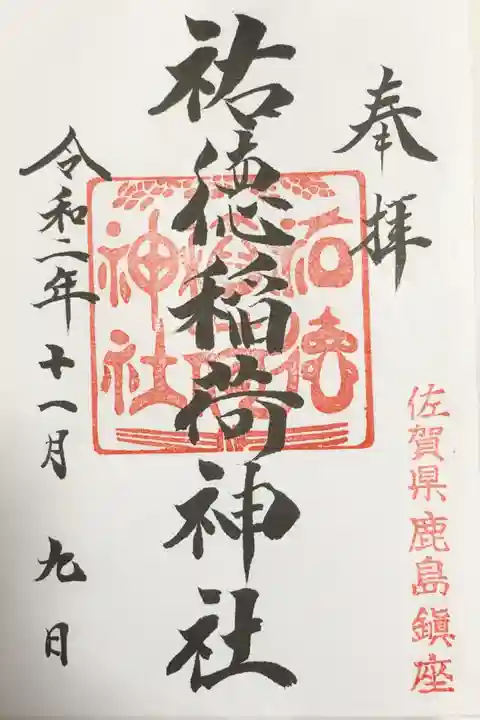 奉拝
佐賀県鹿島鎮座
祐徳稲荷神社
祐徳
神社
令和二年十一月九日